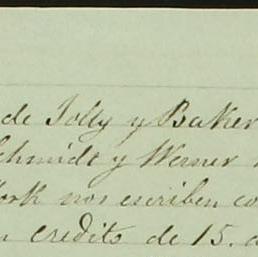 de Jolly y Baker
Schmidt y Werner
York nos escriben co
credito de 15.